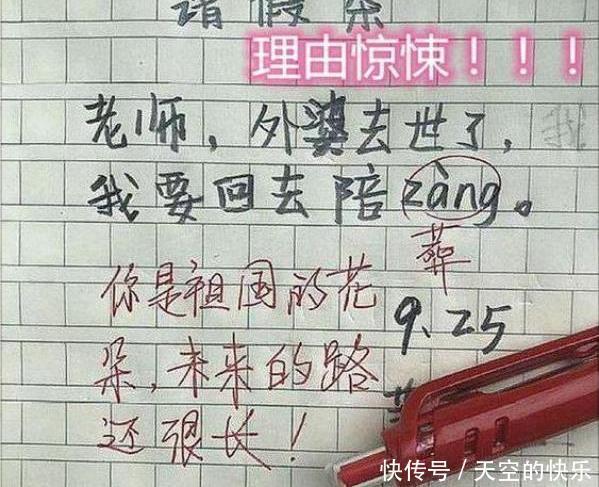 请假条
理由惊悚！！！
老师，外婆去世了，
我要回去陪zàng。
葬
9.25
你是祖国的花
朵，未来的路
还很长！
快传号／天空的快乐